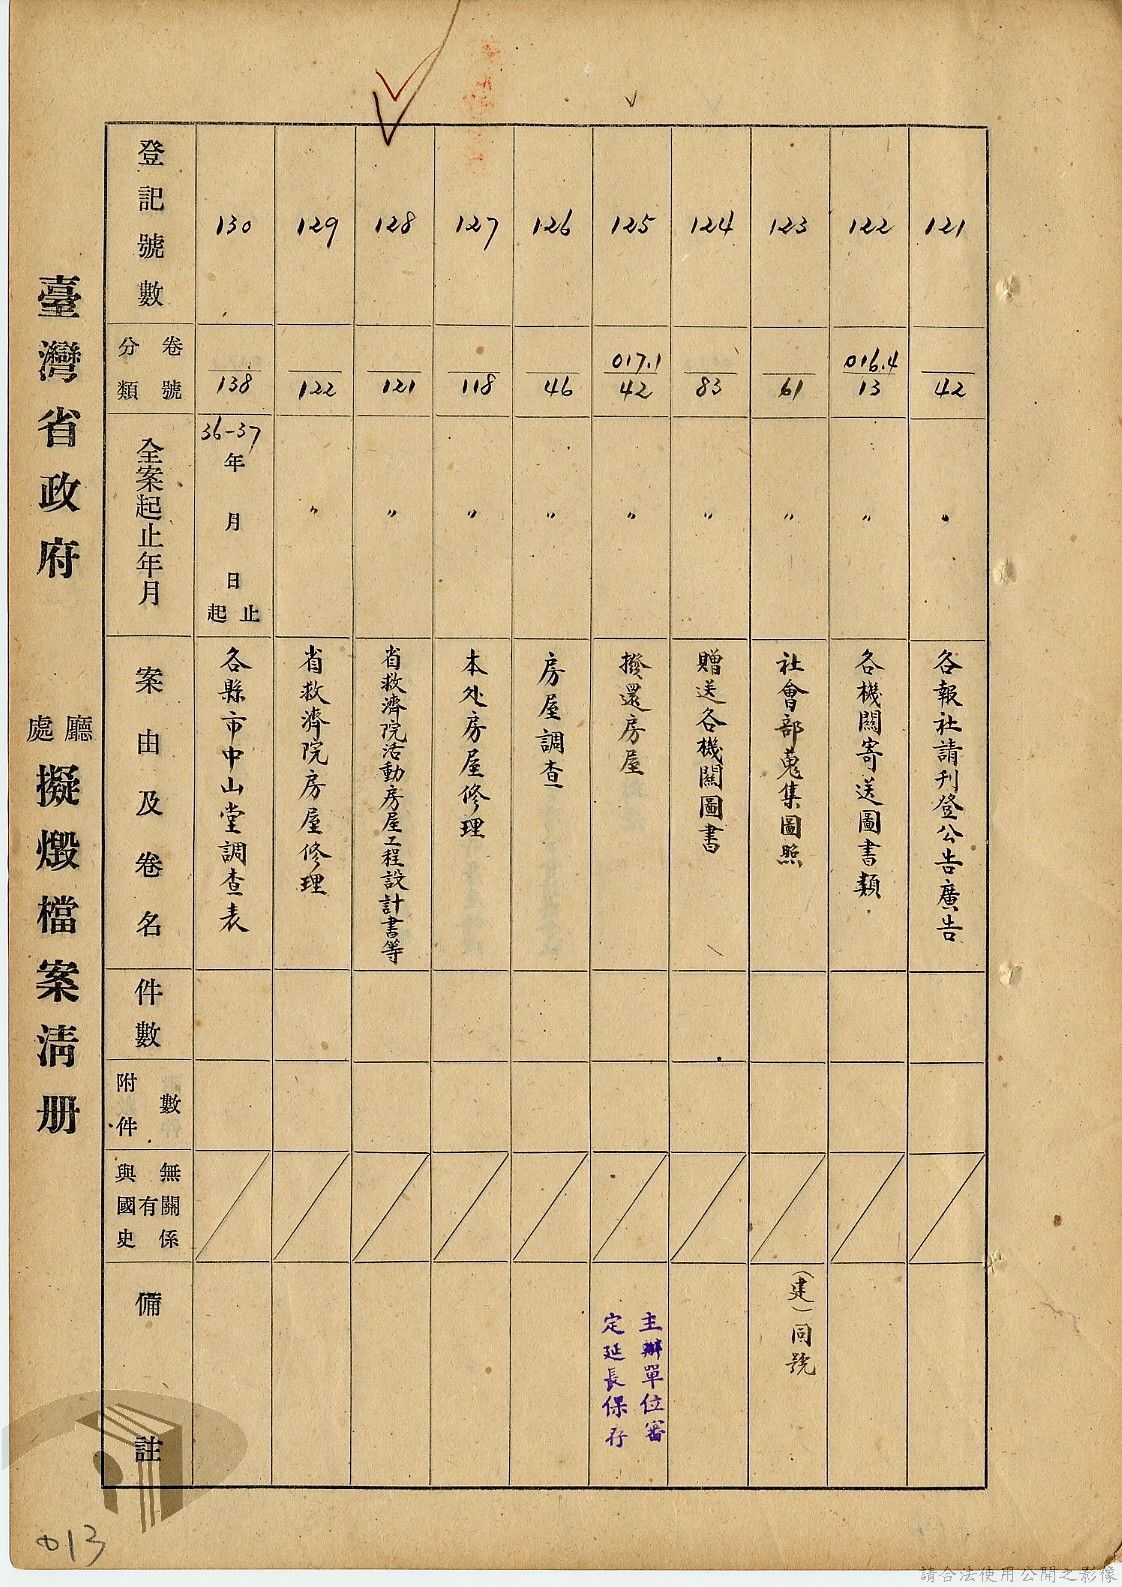 臺灣省政府 廳處 擬燬檔案清册
登記號數
卷號分類
全案起止年月
案由及卷名
件數
附件數
與國史有無關係
備註
121
42
〃
各報社請刊登公告廣告
122
016.4
13
〃
各機關寄送圖書類
123
61
〃
社會部蒐集圖照
(建)同號
124
83
〃
贈送各機關圖書
125
017.1
42
〃
撥還房屋
主辦單位審
定延長保存
126
46
〃
房屋調查
127
118
〃
本処房屋修理
128
121
〃
省救濟院活動房屋工程設計書等
129
122
〃
省救濟院房屋修理
130
138
36-37
年 月 日
起止
各縣市中山堂調查表
013
請合法使用公開之影像